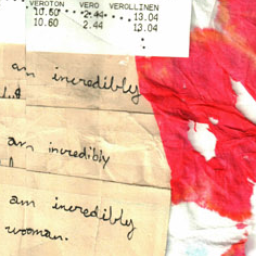 VEROTON VERO VEROLLINEN
10.60 2.44 13.04
10.60 2.44 13.04
am incredibly
am incredibly
am incredibly
woman.